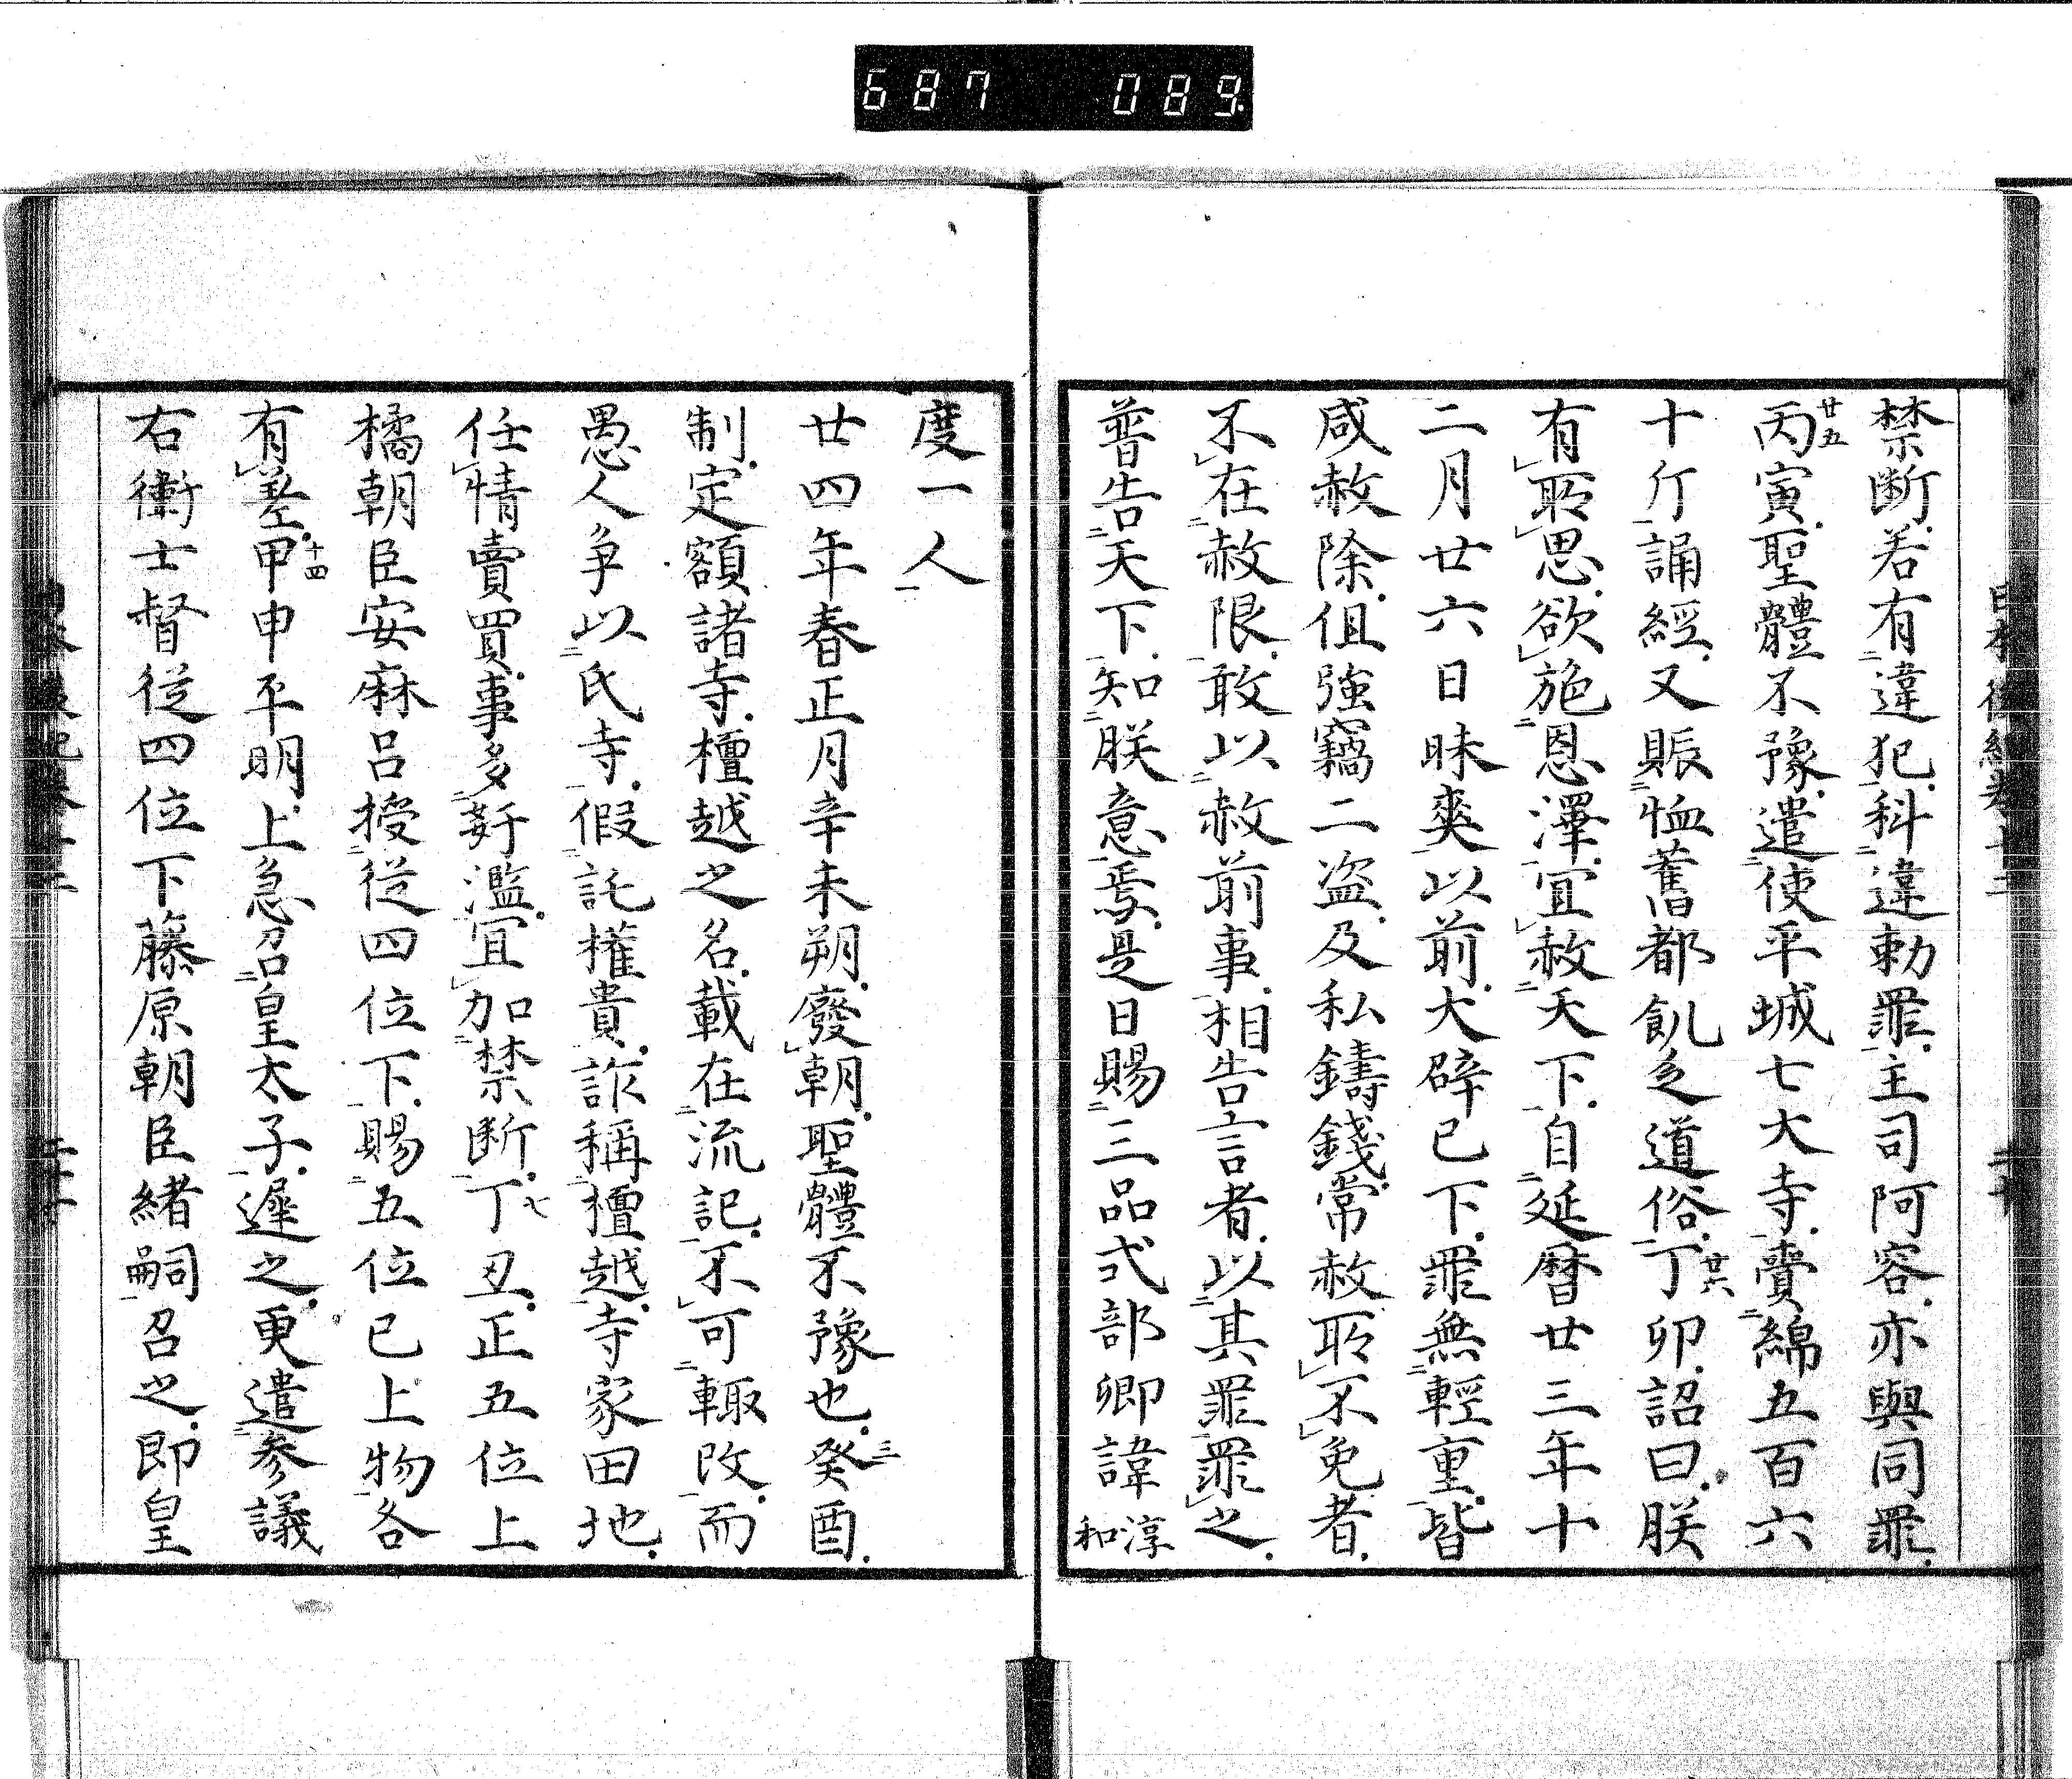 687 089
禁断若有違犯科違勅罪主司阿容亦與同罪
丙寅聖體不豫遣使平城七大寺賷綿五百六
廿五
十斤誦經又賑恤舊都飢乏道俗丁卯詔曰朕
廿六
有所思欲施恩澤宜赦天下自延暦廿三年十
二月廿六日昧爽以前大辟已下罪無輕重皆
咸赦除但強竊二盗及私鑄錢常赦所不免者
不在赦限敢以赦前事相告言者以其罪罪之
普告天下知朕意焉是日賜三品式部卿諱淳和
度一人
廿四年春正月辛未朔廢朝聖體不豫也癸酉
三
制定額諸寺檀越之名載在流記不可輙改而
愚人争以氏寺假託權貴詐稱檀越寺家田地
任情賣買事多奸濫宜加禁断丁丑正五位上
七
橘朝臣安麻呂授從四位下賜五位已上物各
有差甲申平明上急召皇太子遲之更遣參議
十四
右衛士督從四位下藤原朝臣緒嗣召之即皇